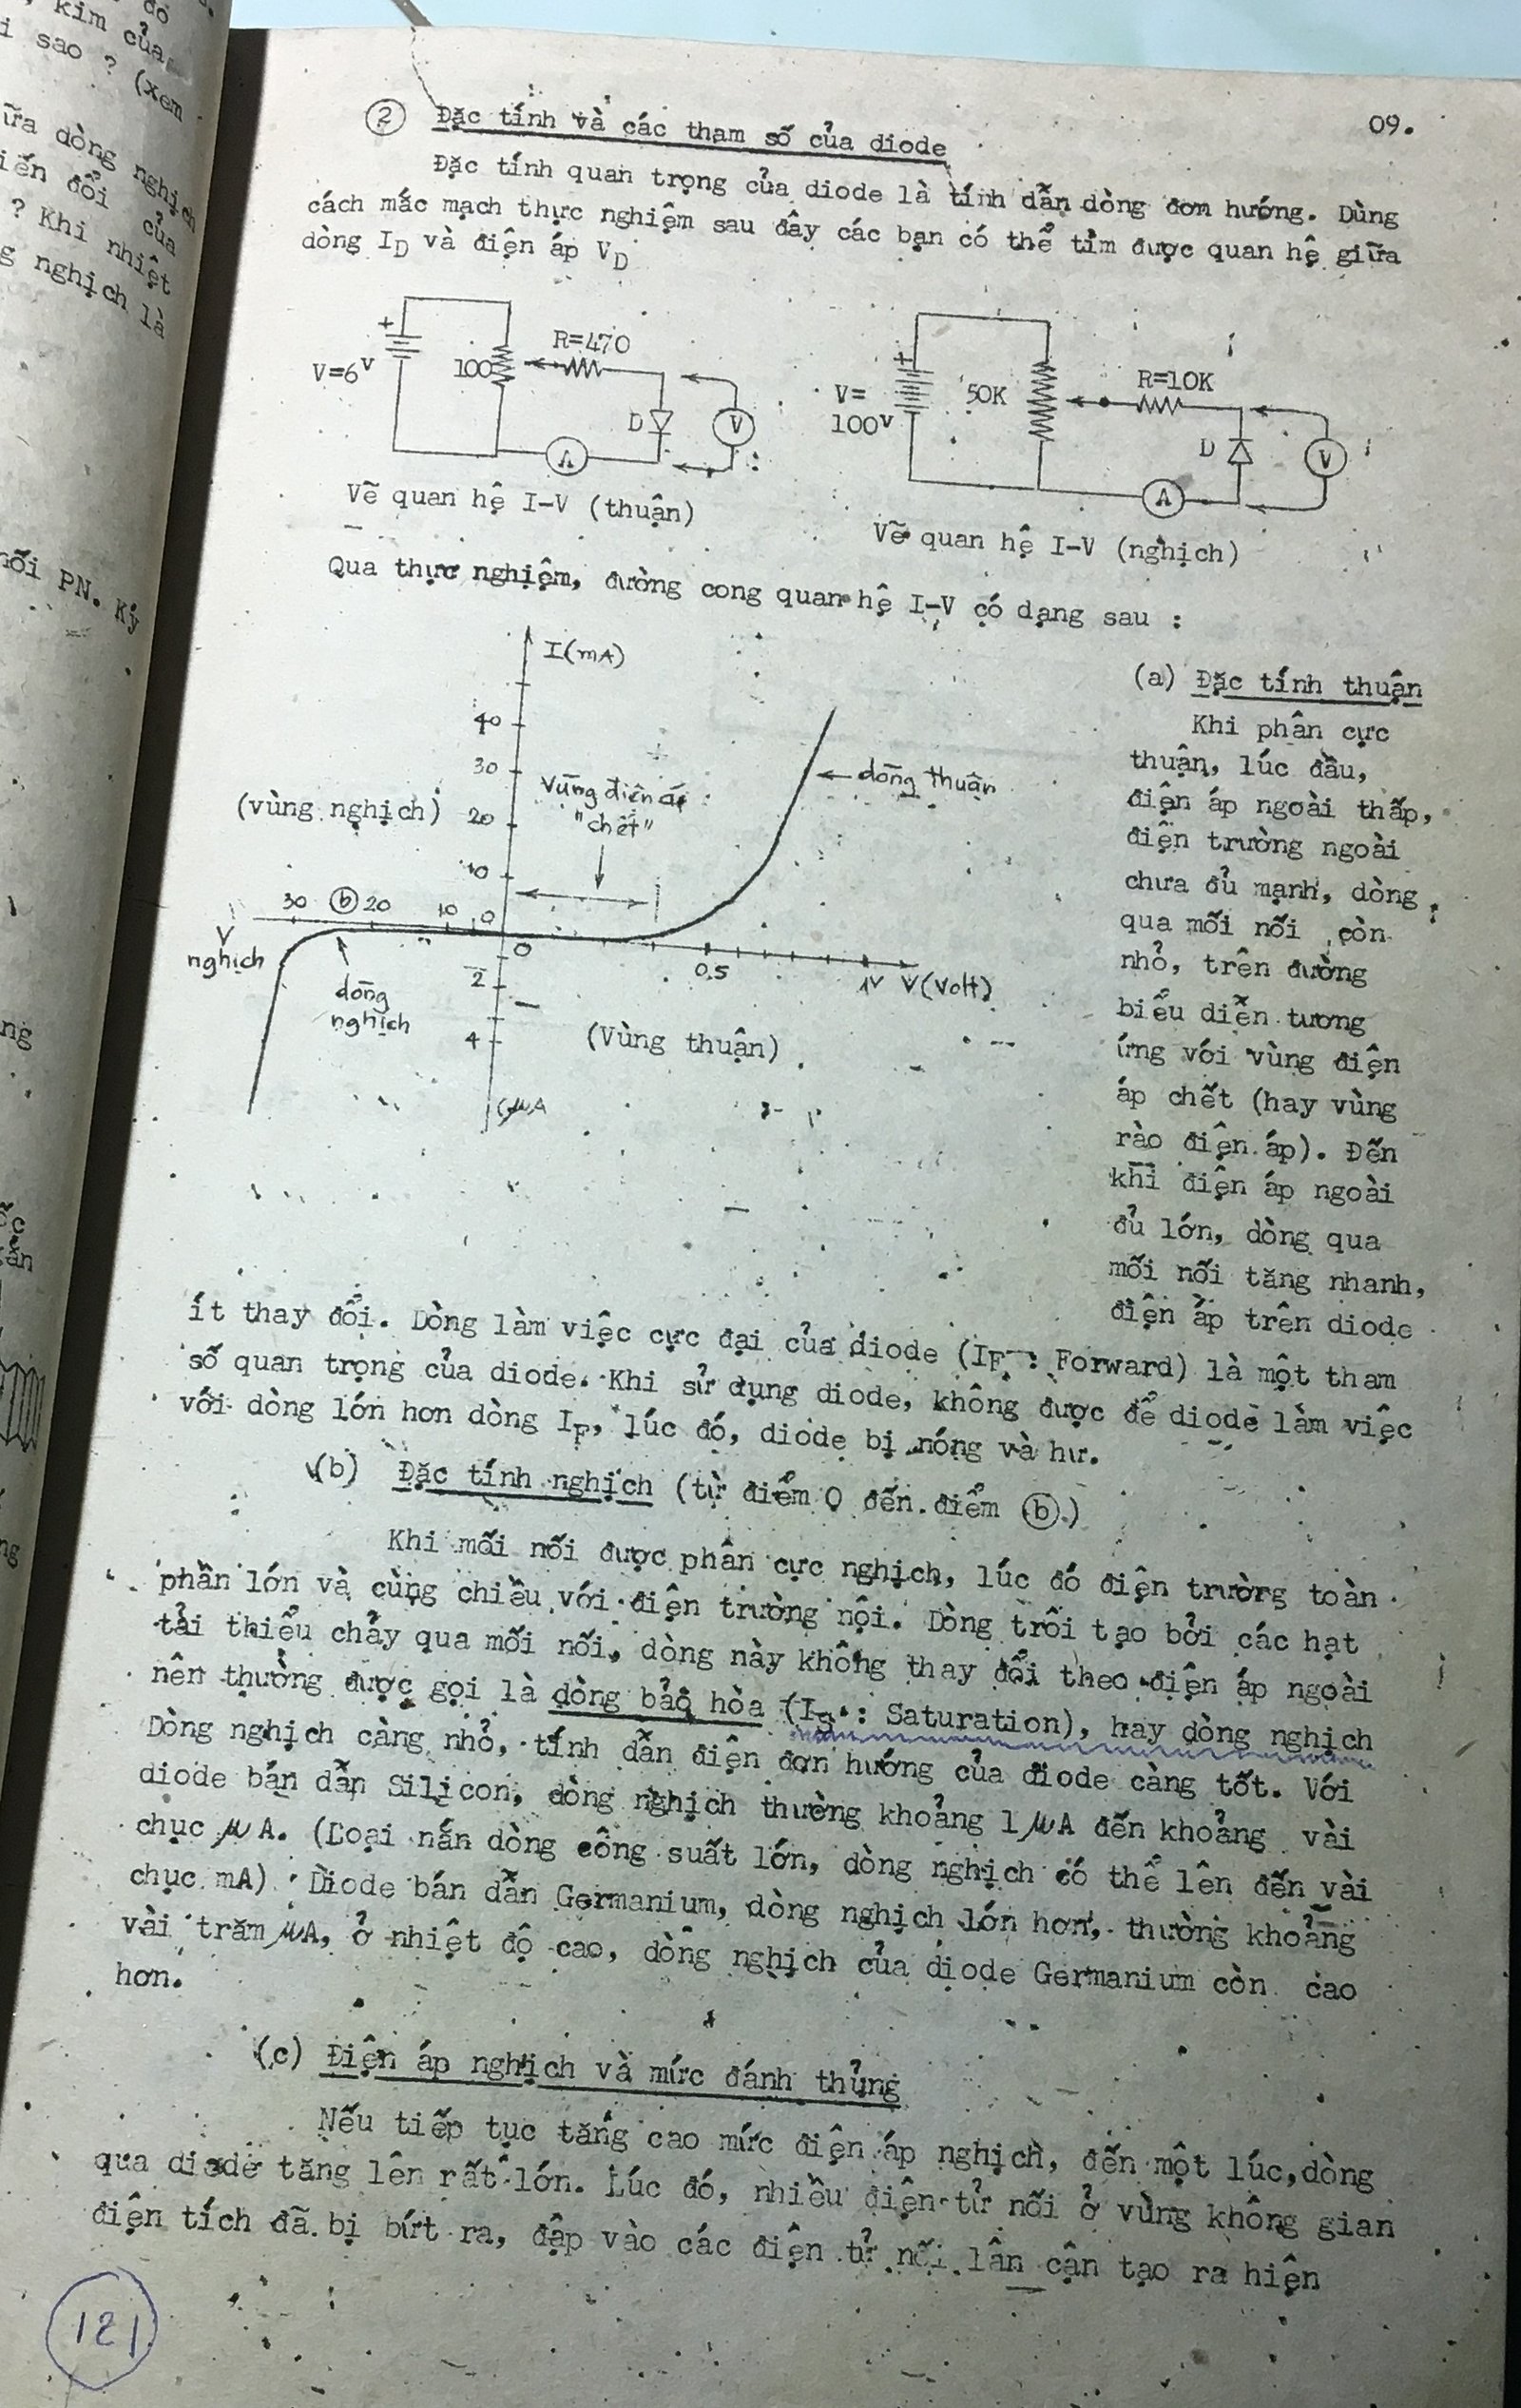 đó
kim của
i sao ? (xem
ữa dòng nghịch
iến đổi của
? Khi nhiệt
g nghịch là
nối PN. Ký
ng
09.
② Đặc tính và các tham số của diode
Đặc tính quan trọng của diode là tính dẫn dòng đơn hướng. Dùng
cách mắc mạch thực nghiệm sau đây các bạn có thể tìm được quan hệ giữa
dòng ID và điện áp VD
+
V=6V
100
R=470
D
V
A
Vẽ quan hệ I-V (thuận)
+
V=
100V
50K
R=10K
D
V
A
Vẽ quan hệ I-V (nghịch)
Qua thực nghiệm, đường cong quan hệ I-V có dạng sau :
I(mA)
40
30
20
10
(vùng nghịch)
Vùng điện áp
"chết"
dòng thuận
30 ⓑ 20 10 0
V
nghịch
dòng
nghịch
0
0.5
1V V(Volt)
2
4
(Vùng thuận)
(μA
(a) Đặc tính thuận
Khi phân cực
thuận, lúc đầu,
điện áp ngoài thấp,
điện trường ngoài
chưa đủ mạnh, dòng
qua mối nối còn
nhỏ, trên đường
biểu diễn tương
ứng với vùng điện
áp chết (hay vùng
rào điện áp). Đến
khi điện áp ngoài
đủ lớn, dòng qua
mối nối tăng nhanh,
điện áp trên diode
ít thay đổi. Dòng làm việc cực đại của diode (IF : Forward) là một tham
số quan trọng của diode. Khi sử dụng diode, không được để diode làm việc
với dòng lớn hơn dòng IF, lúc đó, diode bị nóng và hư.
(b) Đặc tính nghịch (từ điểm O đến điểm ⓑ)
Khi mối nối được phân cực nghịch, lúc đó điện trường toàn
phần lớn và cùng chiều với điện trường nội. Dòng trôi tạo bởi các hạt
tải thiểu chảy qua mối nối, dòng này không thay đổi theo điện áp ngoài
nên thường được gọi là dòng bảo hòa (IS : Saturation), hay dòng nghịch
Dòng nghịch càng nhỏ, tính dẫn điện đơn hướng của diode càng tốt. Với
diode bán dẫn Silicon, dòng nghịch thường khoảng 1μA đến khoảng vài
chục μA. (Loại nắn dòng công suất lớn, dòng nghịch có thể lên đến vài
chục mA) Diode bán dẫn Germanium, dòng nghịch lớn hơn, thường khoảng
vài trăm μA, ở nhiệt độ cao, dòng nghịch của diode Germanium còn cao
hơn.
(c) Điện áp nghịch và mức đánh thủng
Nếu tiếp tục tăng cao mức điện áp nghịch, đến một lúc, dòng
qua diode tăng lên rất lớn. Lúc đó, nhiều điện tử nối ở vùng không gian
điện tích đã bị bứt ra, đập vào các điện tử nối lân cận tạo ra hiện
121